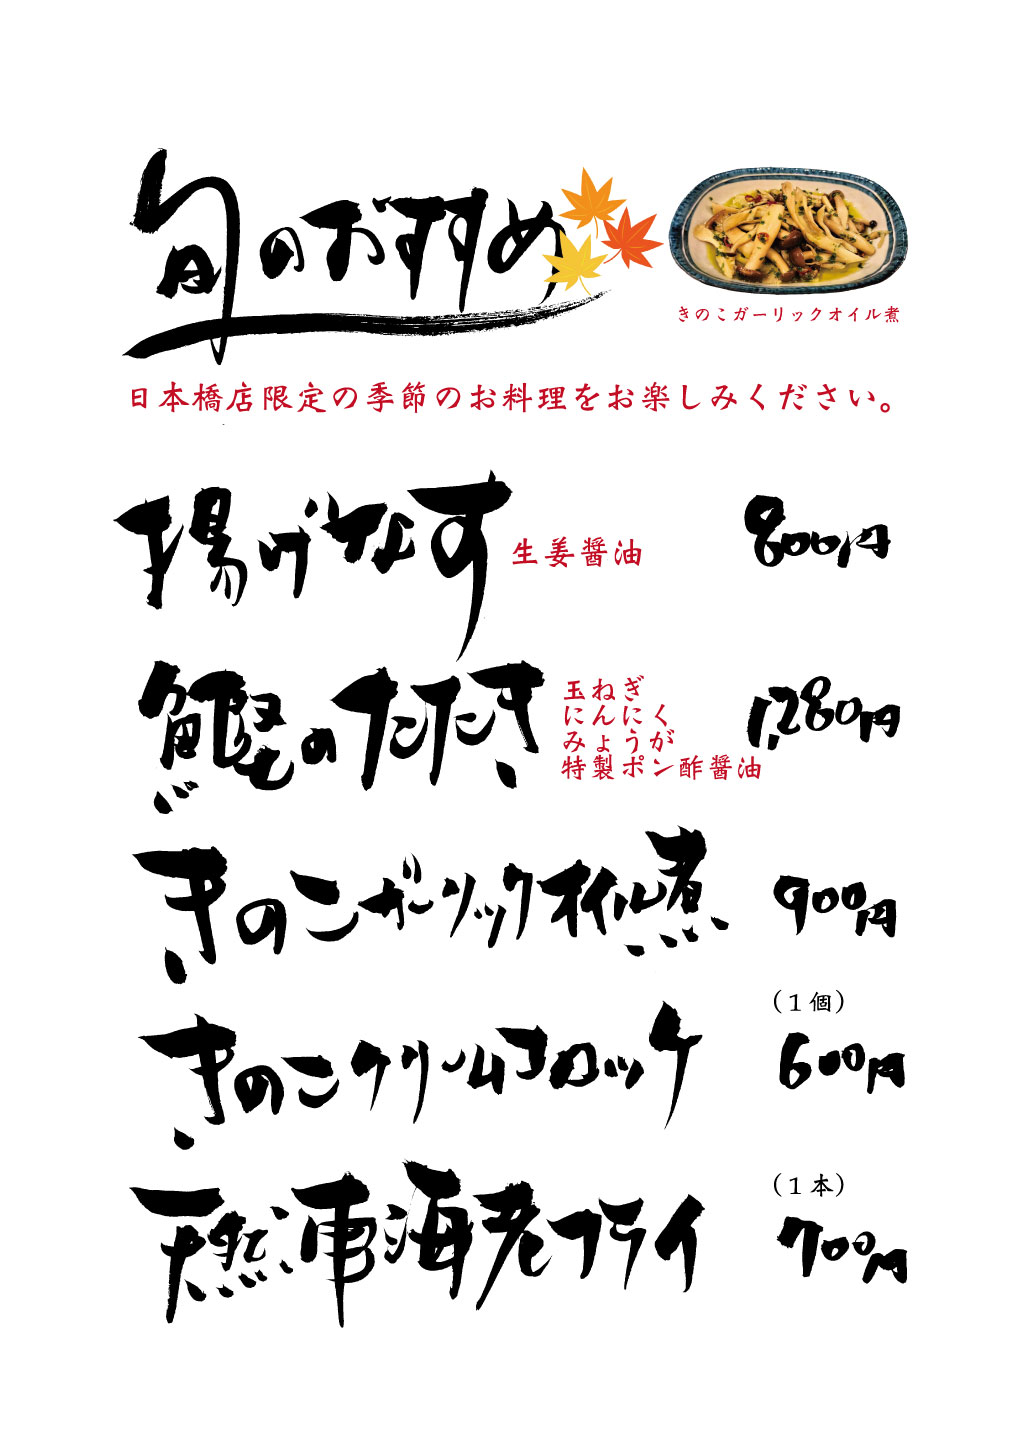 旬のおすすめ
きのこガーリックオイル煮
日本橋店限定の季節のお料理をお楽しみください。
揚げなす 生姜醤油 800円
鰹のたたき 玉ねぎ 1,280円
にんにく
みょうが
特製ポン酢醤油
きのこガーリックオイル煮 900円
(1個)
きのこクリームコロッケ 600円
(1本)
天然車海老フライ 700円